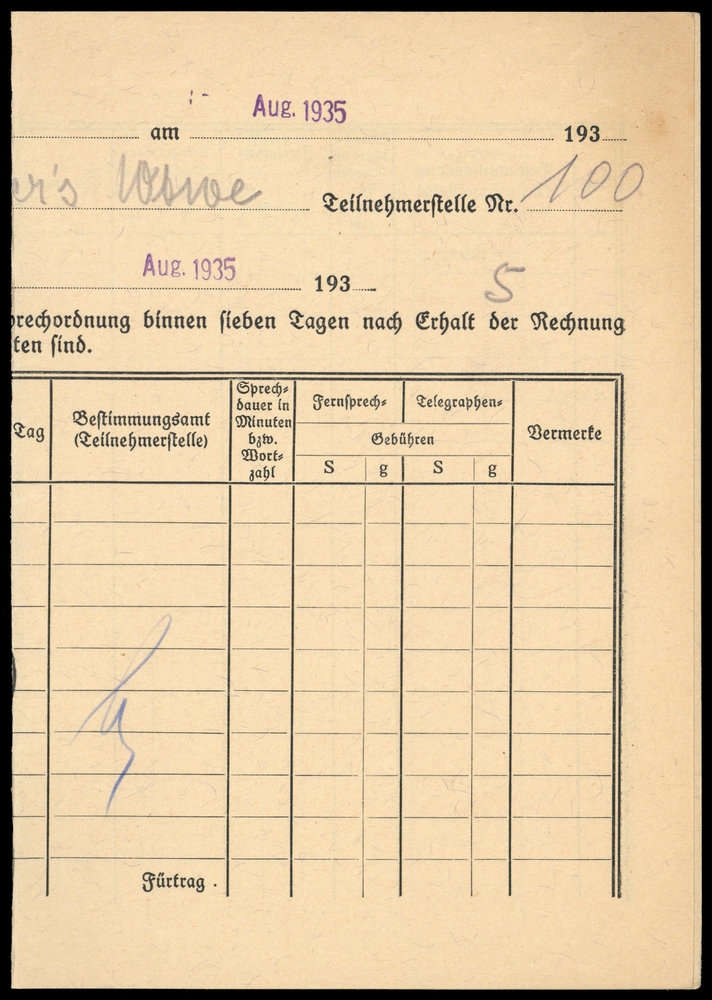 Aug. 1935
am 193
er's Wwe Teilnehmerstelle Nr. 100
Aug. 1935 193 5
prechordnung binnen sieben Tagen nach Erhalt der Rechnung
ten sind.
Tag
Bestimmungsamt
(Teilnehmerstelle)
Sprech-
dauer in
Minuten
bzw.
Wort-
zahl
Fernsprech- Telegraphen-
Gebühren
S g S g
Vermerke
Fürtrag .